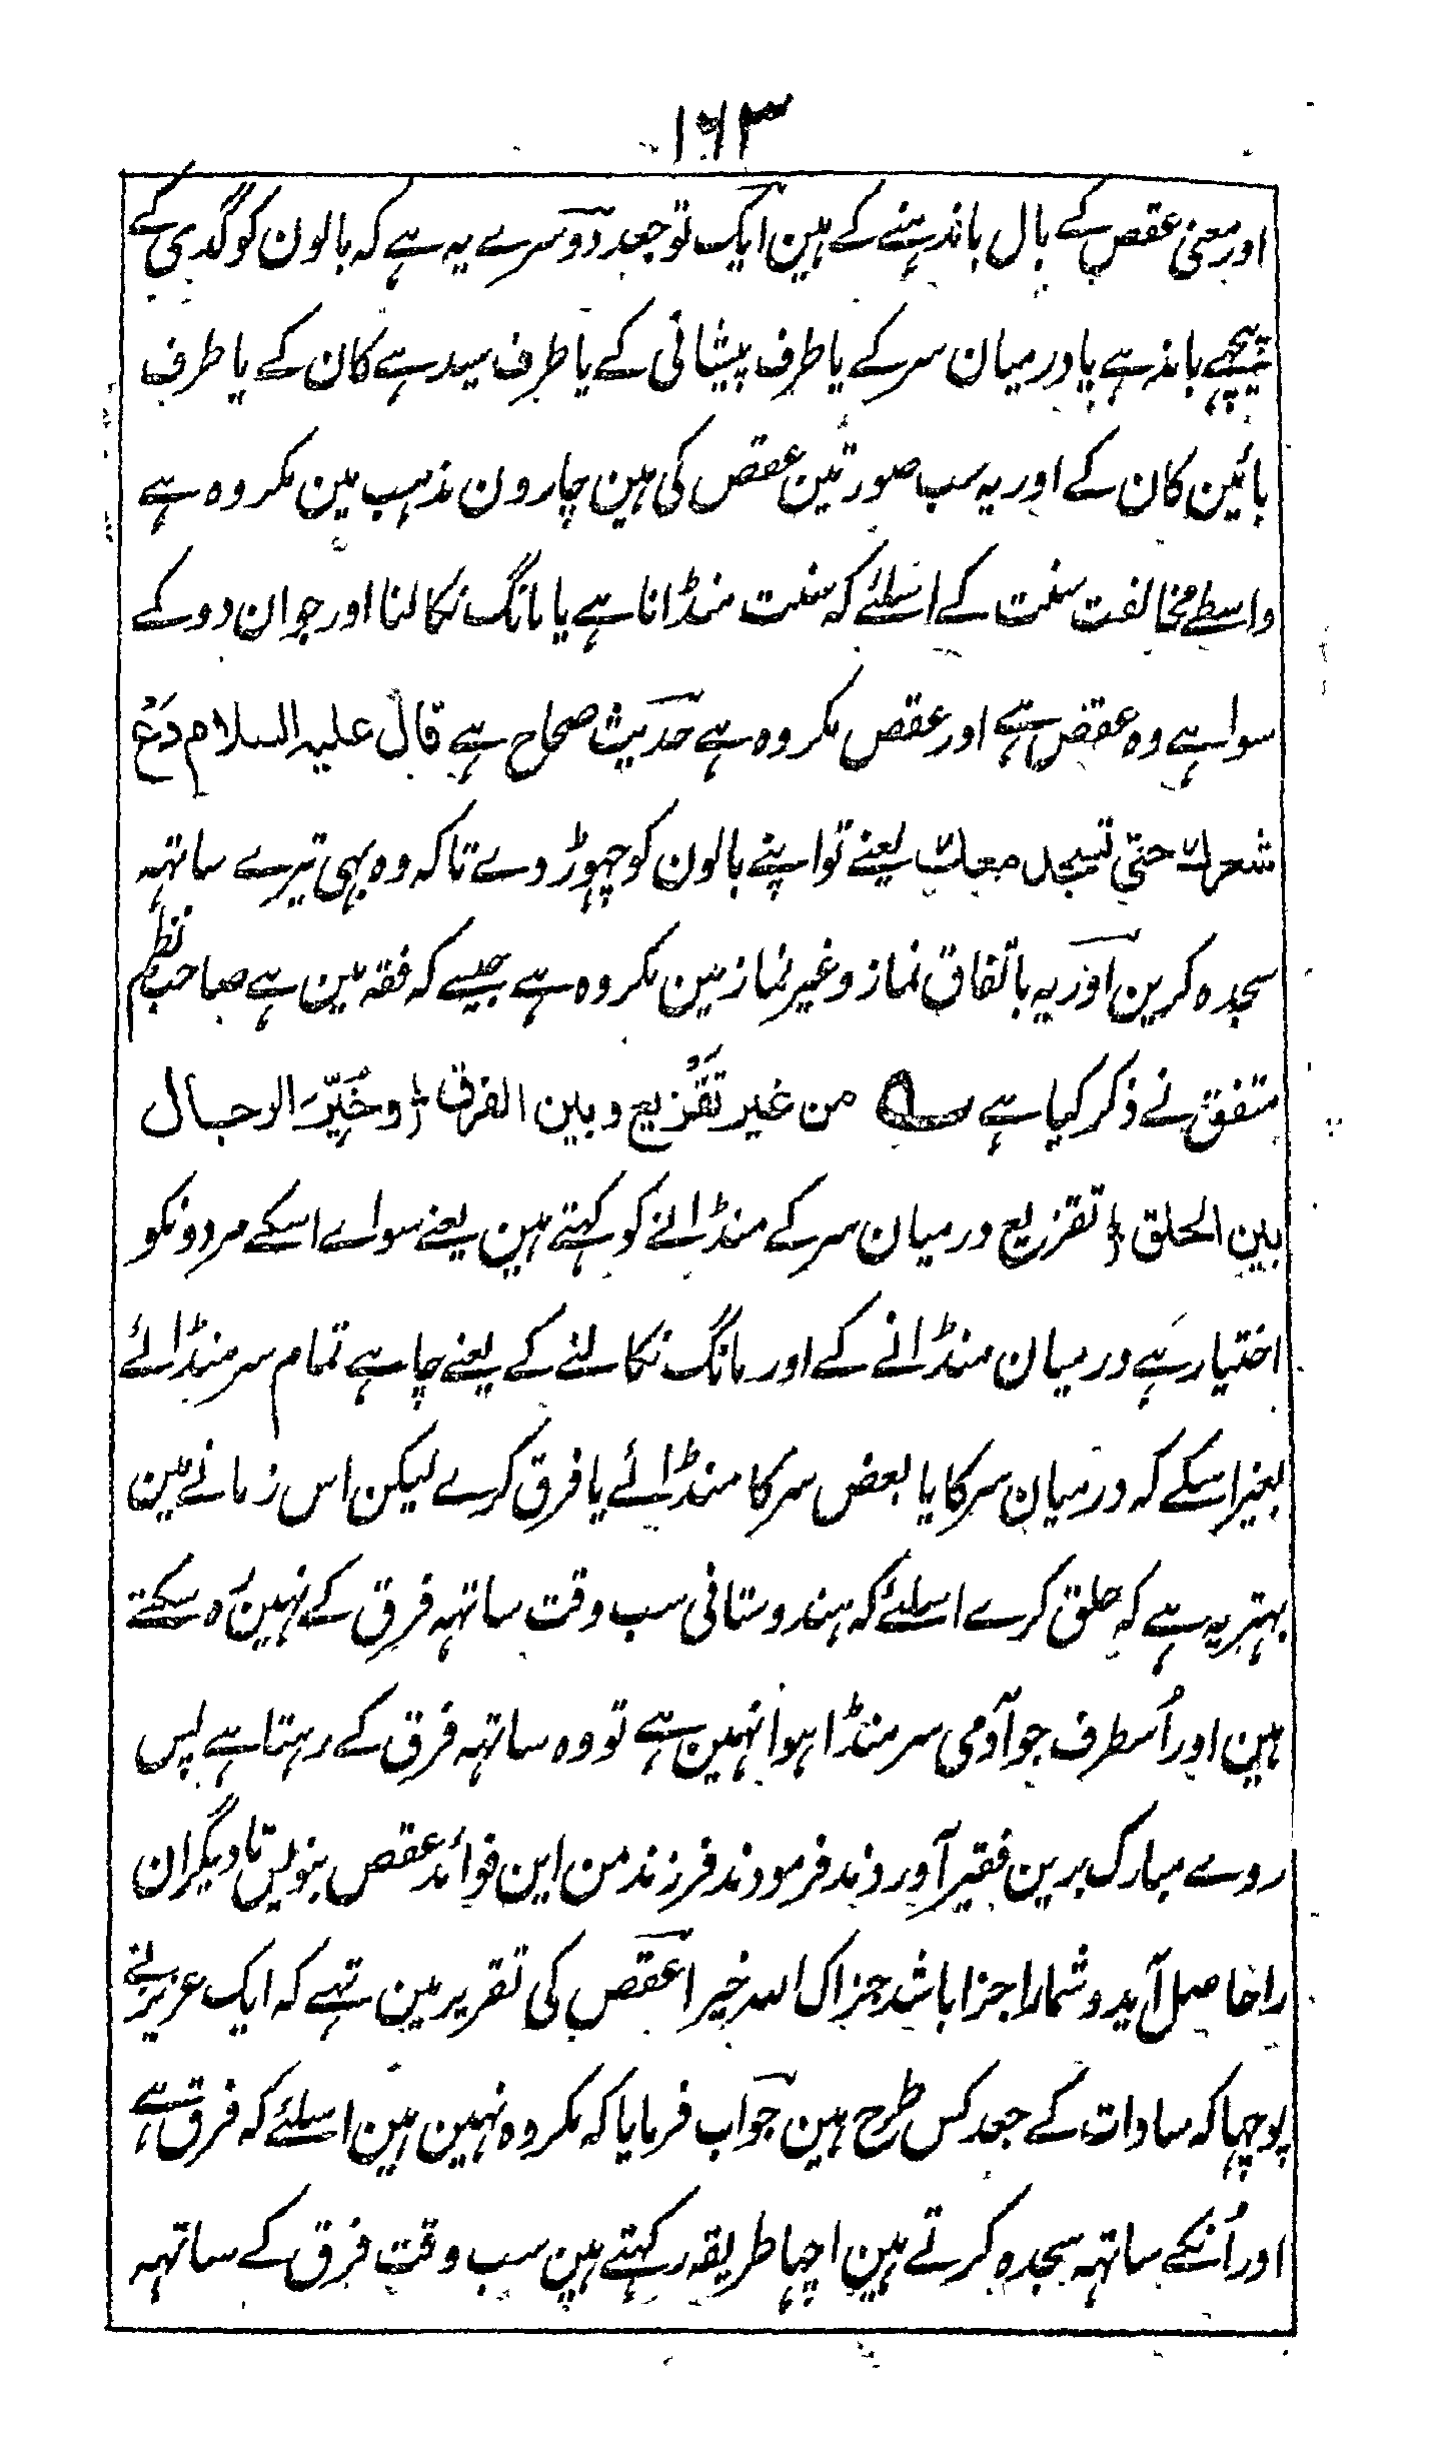 ١٦٣
اور معنی عقص کے بال باندہنے کے ہین ایک تو جعد دوسرے یہ ہے کہ بالون کو گدی کے
پیچہے باندہے یا درمیان سر کے یا طرف پیشانی کے یا طرف سیدہے کان کے یا طرف
بائین کان کے اور یہ سب صورتین عقص کی ہین چارون مذہب مین مکروہ ہے
واسطے مخالفت سنت کے اسلئے کہ سنت منڈانا ہے یا مانگ نکالنا اور جو ان دو کے
سوا ہے وہ عقص ہے اور عقص مکروہ ہے حدیث صحاح ہے قال علیہ السلام دَعْ
شعرك حتی تسجد معك یعنے تو اپنے بالون کو چہوڑ دے تاکہ وہ بہی تیرے ساتہہ
سجدہ کرین اور یہ باتفاق نماز و غیر نماز مین مکروہ ہے جیسے کہ فقہ مین ہے صاحب نظم
متفق نے ذکر کیا ہے من غیر تَقْزیع و بین الفرق ؛ وخُیِّرَ الرجال
بین الحلق ؛ تقزیع درمیان سر کے منڈانے کو کہتے ہین یعنے سواے اسکے مردونکو
اختیار ہے درمیان منڈانے کے اور مانگ نکالنے کے یعنے چاہے تمام سر منڈائے
بغیر اسکے کہ درمیان سر کا یا بعض سر کا منڈائے یا فرق کرے لیکن اس زمانے مین
بہتر یہ ہے کہ حلق کرے اسلئے کہ ہندوستانی سب وقت ساتہہ فرق کے نہین رہ سکتے
ہین اور اُسطرف جو آدمی سر منڈا ہوا نہین ہے تو وہ ساتہہ فرق کے رہتا ہے پس
روے مبارک برین فقیر آوردند فرمودند فرزند من این فوائد عقص بنویس تا دیگران
را حاصل آید و شمارا جزا باشد جزاک اللہ خیرا عقص کی تقریر مین تہے کہ ایک عزیز نے
پوچہا کہ سادات کے جعد کس طرح ہین جواب فرمایا کہ مکروہ نہین ہین اسلئے کہ فرق ہے
اور اُنکے ساتہہ سجدہ کرتے ہین اچہا طریقہ رکہتے ہین سب وقت فرق کے ساتہہ